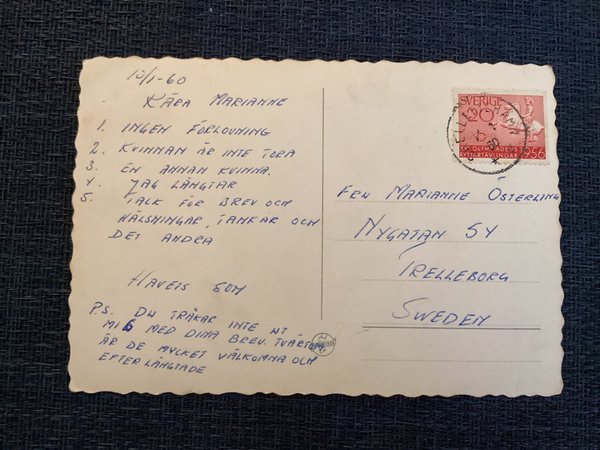 10/1-60
KÄRA MARIANNE
1. INGEN FÖRLOVNING
2. KVINNAN ÄR INTE TORA
3. EN ANNAN KVINNA.
4. JAG LÄNGTAR
5. TALK FÖR BREV OCH
HÄLSNINGAR, TANKAR OCH
DET ANDRA
SOM
P.S. DU TRÅKAR INTE UT
MIG MED DINA BREV. TVÄRTOM
ÄR DE MYCKET VÄLKOMNA OCH
EFTERLÄNGTADE
SVERIGE
20
XVI OLYMPIADENS
RYTTARTÄVLINGAR 1956
FRU MARIANNE ÖSTERLING
NYGATAN 54
TRELLEBORG
SWEDEN